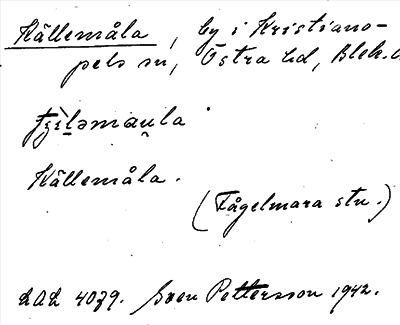 Källemåla, by i Kristiano-
pels sn, Östra hd, Blek.
Källemåla.
(Fågelmara stn.)
LAL 4079. Sven Pettersson 1942.